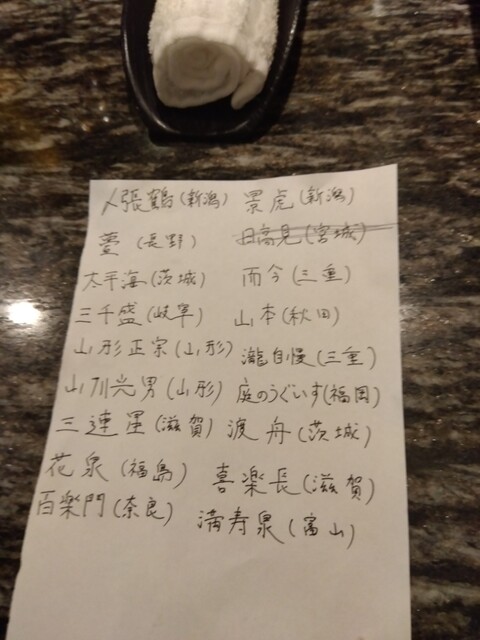 〆張鶴(新潟) 景虎(新潟)
蔓(長野) 日高見(宮城)
太平海(茨城) 而今(三重)
三千盛(岐阜) 山本(秋田)
山形正宗(山形) 瀧自慢(三重)
山川光男(山形) 庭のうぐいす(福岡)
三連星(滋賀) 渡舟(茨城)
花泉(福島) 喜楽長(滋賀)
百楽門(奈良) 満寿泉(富山)